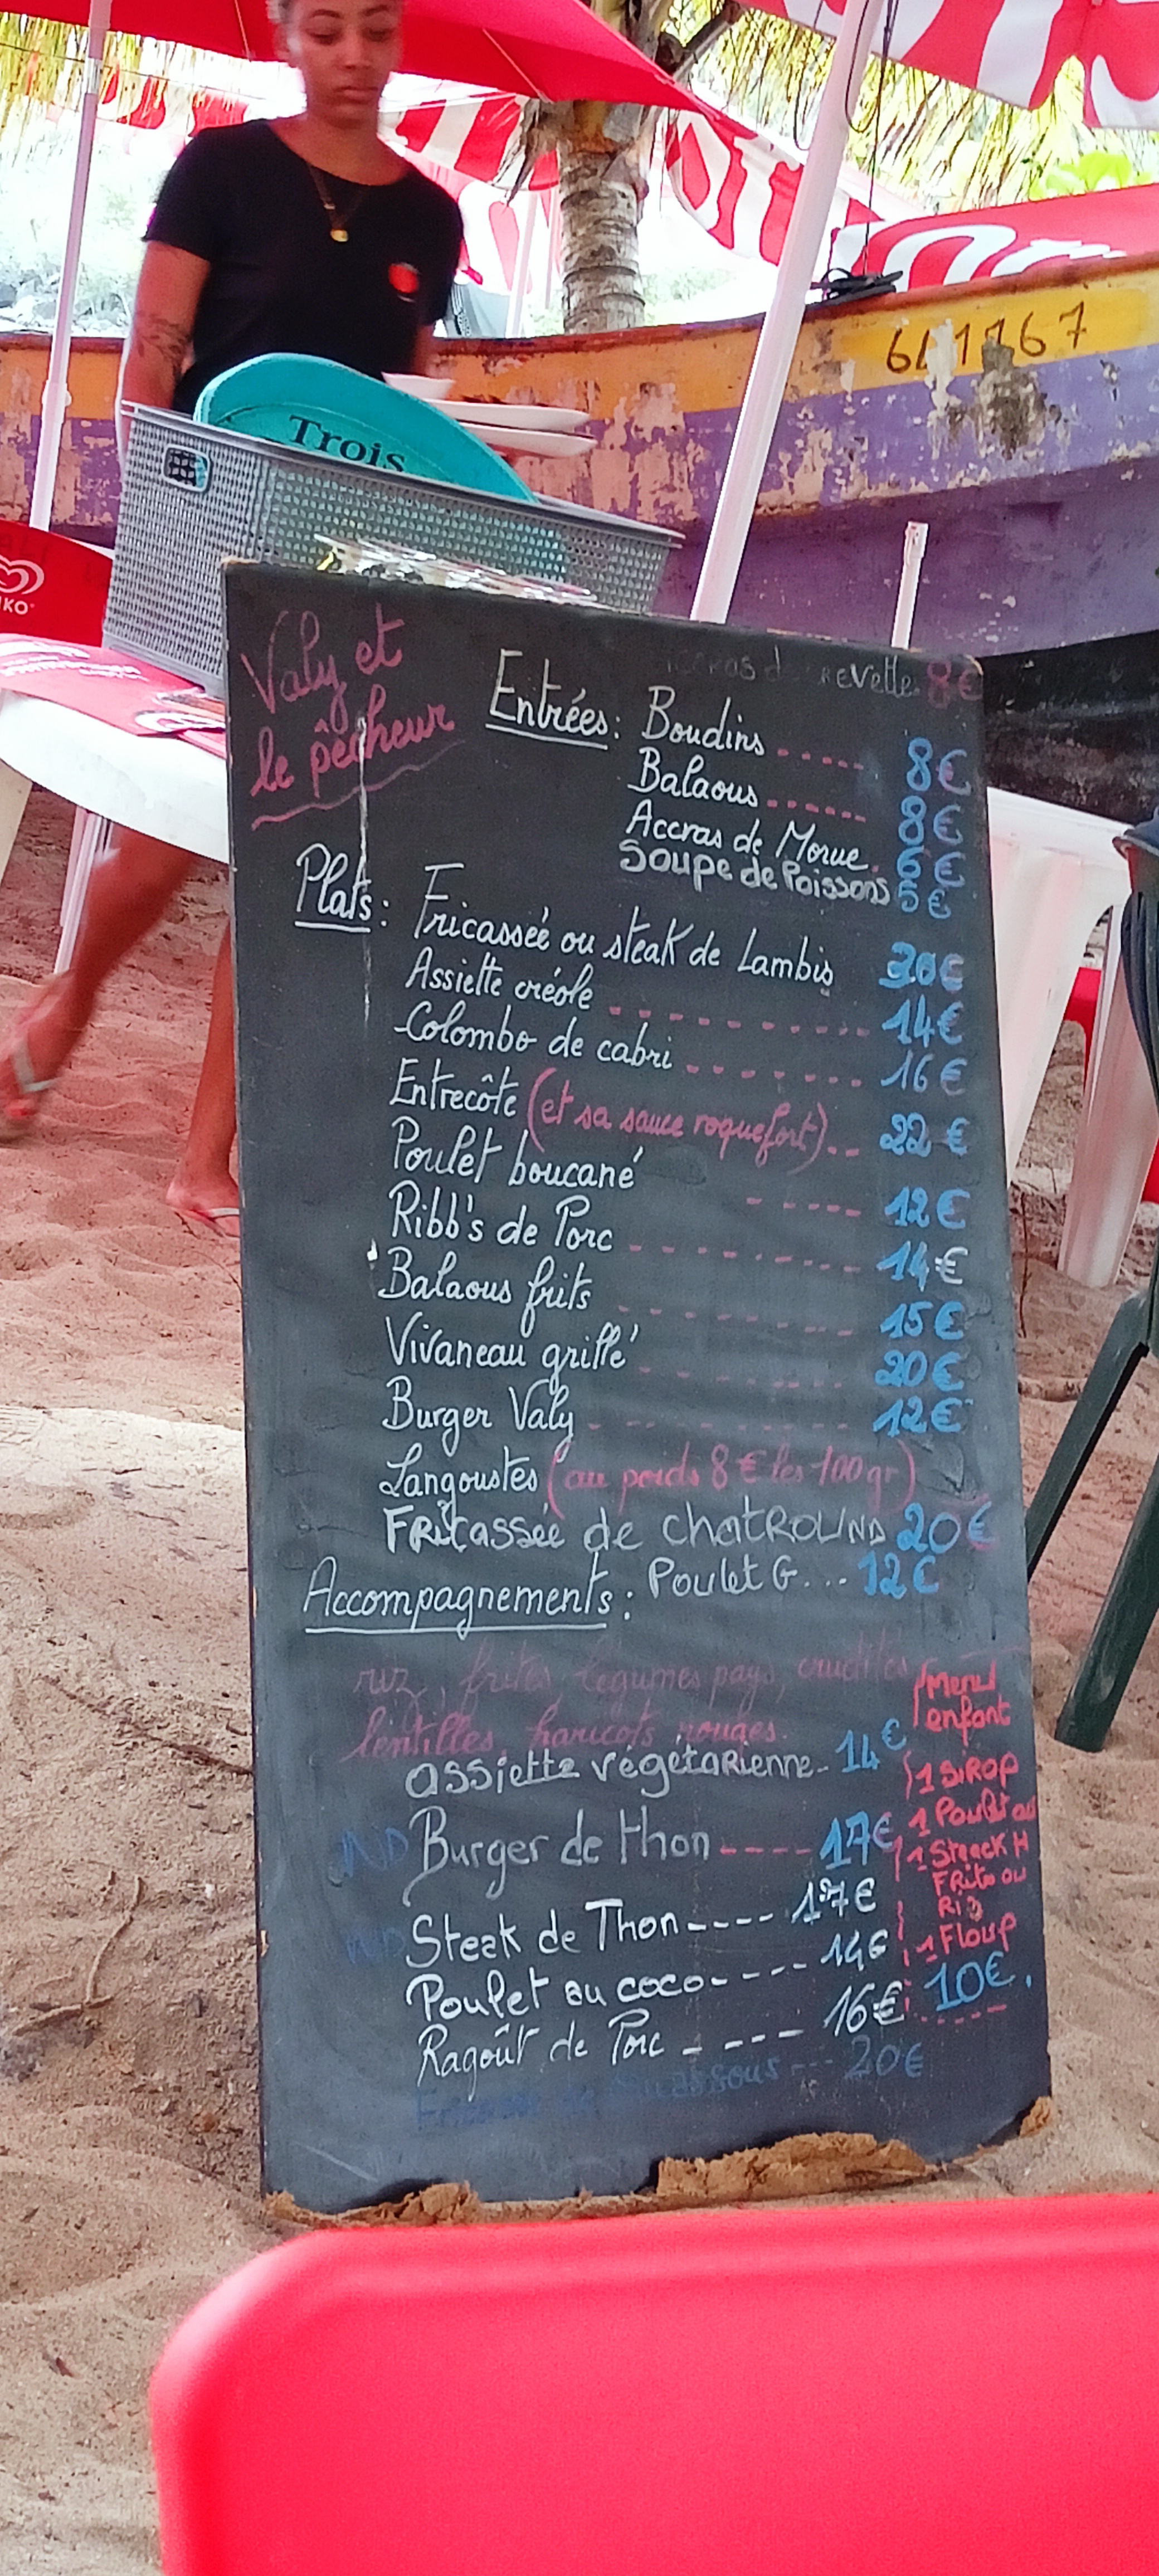 641767
Trois
Valy et
le pêcheur
Accras de crevette 8€
Entrées: Boudins ----- 8€
Balaous ------ 8€
Accras de Morue. 6€
Soupe de Poissons 5€
Plats: Fricassée ou steak de Lambis 20€
Assiette créole ---------- 14€
Colombo de cabri -------- 16€
Entrecôte (et sa sauce roquefort)-- 22€
Poulet boucané ----- 12€
Ribb's de Porc --------- 14€
Balaous frits --------- 15€
Vivaneau grillé --------- 20€
Burger Valy --------- 12€
Langoustes (au poids 8€ les 100gr)
Fricassée de chatrou 20€
Poulet G... 12€
Accompagnements:
riz, frites, légumes pays, crudités
lentilles, haricots rouges.
assiette végétarienne- 14€
Burger de thon ---- 17€
Steak de Thon ---- 17€
Poulet au coco ---- 14€
Ragoût de Porc ---- 16€
--- 20€
Menu
enfant
1 SiROP
1 Poulet ou
1 Steack H
FRites ou
Riz
1 Floup
10€.